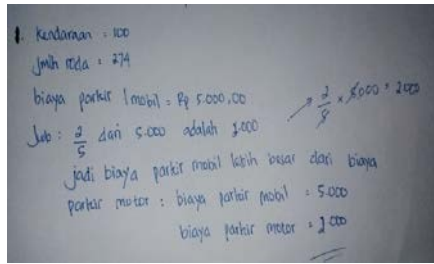 1. Kendaraan : 100
Jmlh roda : 274
biaya parkir 1 mobil = Rp 5.000,00
Jwb : 2/5 dari 5.000 adalah 2.000
2/5 x 5.000 = 2000
jadi biaya parkir mobil lebih besar dari biaya
parkir motor : biaya parkir mobil : 5.000
biaya parkir motor : 2.000